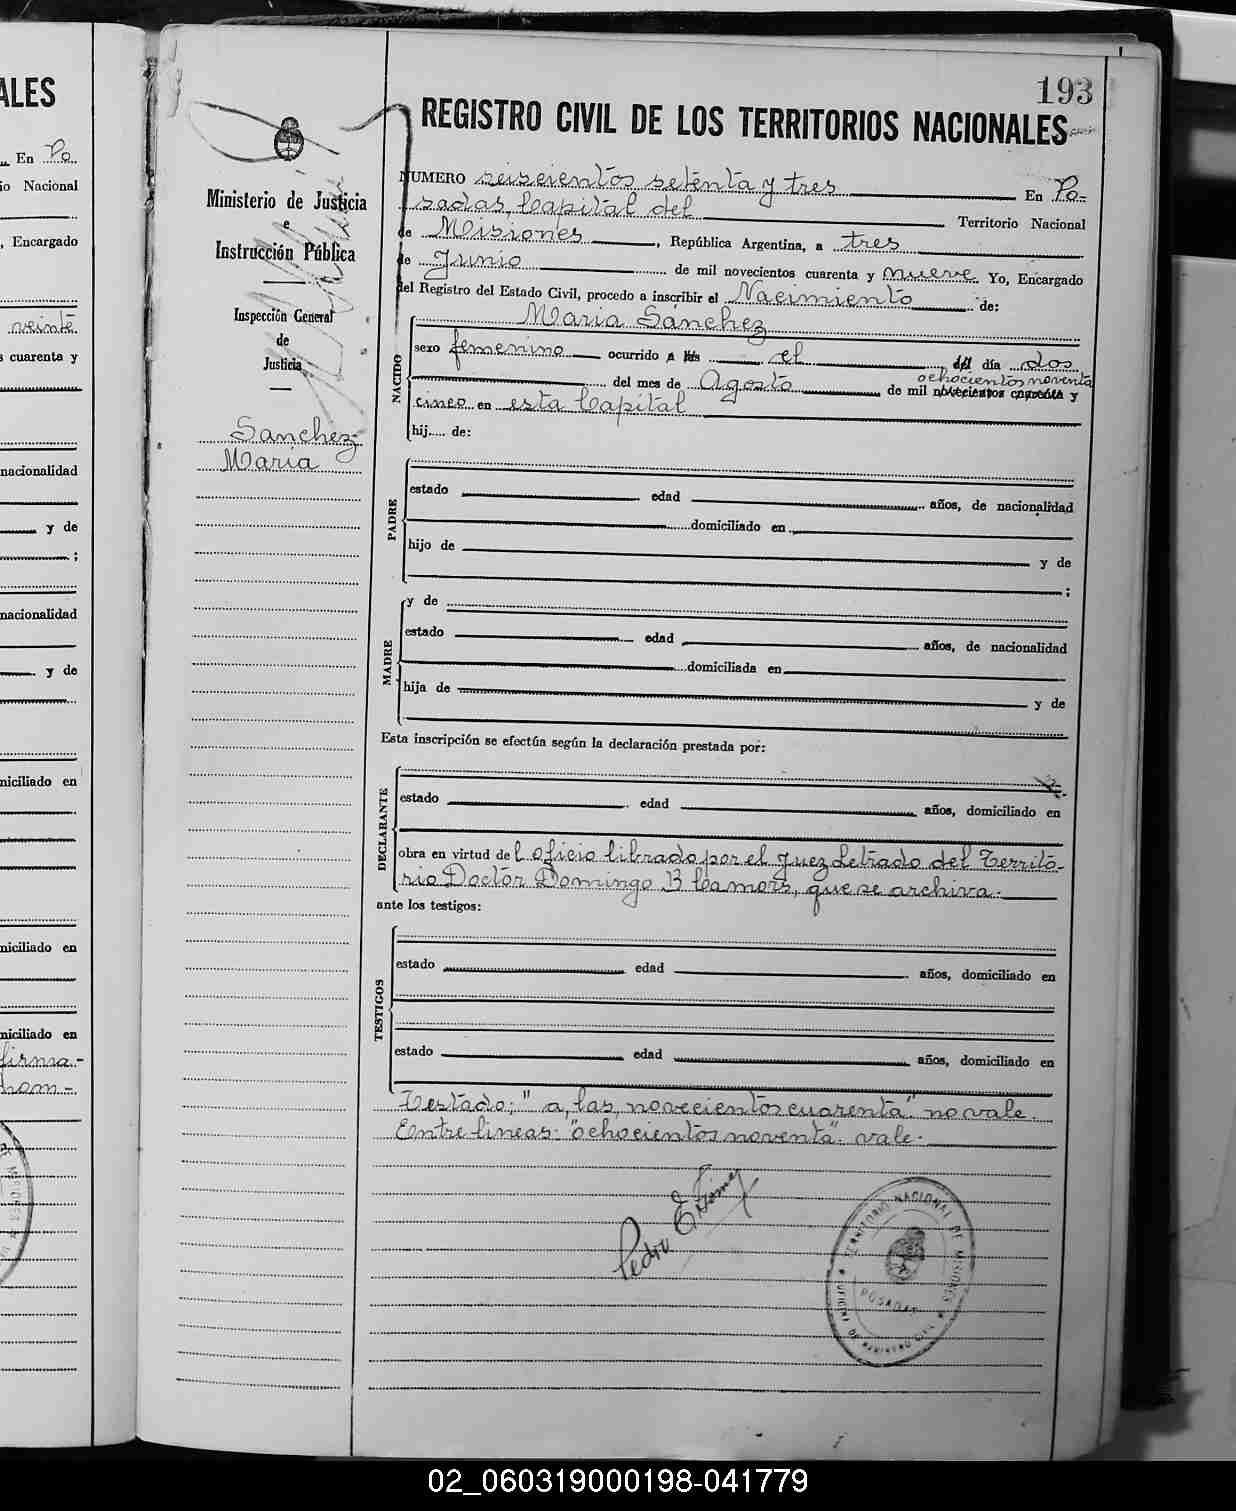 ALES
En Po
io Nacional
, Encargado
veinte
s cuarenta y
nacionalidad
y de
;
nacionalidad
y de
niciliado en
niciliado en
niciliado en
firma-
nom-
193
REGISTRO CIVIL DE LOS TERRITORIOS NACIONALES
Ministerio de Justicia
e
Instrucción Pública
Inspección General
de
Justicia
Sanchez
Maria
NUMERO seiscientos setenta y tres En Po-
sadas, Capital del Territorio Nacional
de Misiones, República Argentina, a tres
de Junio de mil novecientos cuarenta y nueve Yo, Encargado
del Registro del Estado Civil, procedo a inscribir el Nacimiento de:
Maria Sánchez
NACIDO
sexo femenino ocurrido a las el del día dos
ochocientos noventa
del mes de Agosto de mil novecientos cuarenta y
cinco en esta Capital
hij..... de:
PADRE
estado edad años, de nacionalidad
domiciliado en
hijo de y de
;
MADRE
y de
estado edad años, de nacionalidad
domiciliada en
hija de y de
Esta inscripción se efectúa según la declaración prestada por:
DECLARANTE
estado edad años, domiciliado en
obra en virtud del oficio librado por el Juez Letrado del Territo-
rio Doctor Domingo B Camors, que se archiva.
ante los testigos:
TESTIGOS
estado edad años, domiciliado en
estado edad años, domiciliado en
Testado: "a, las, novecientos cuarenta". no vale.
Entre lineas: "ochocientos noventa". vale.
Pedro E Gómez
TERRITORIO NACIONAL DE MISIONES
POSADAS
02_060319000198-041779